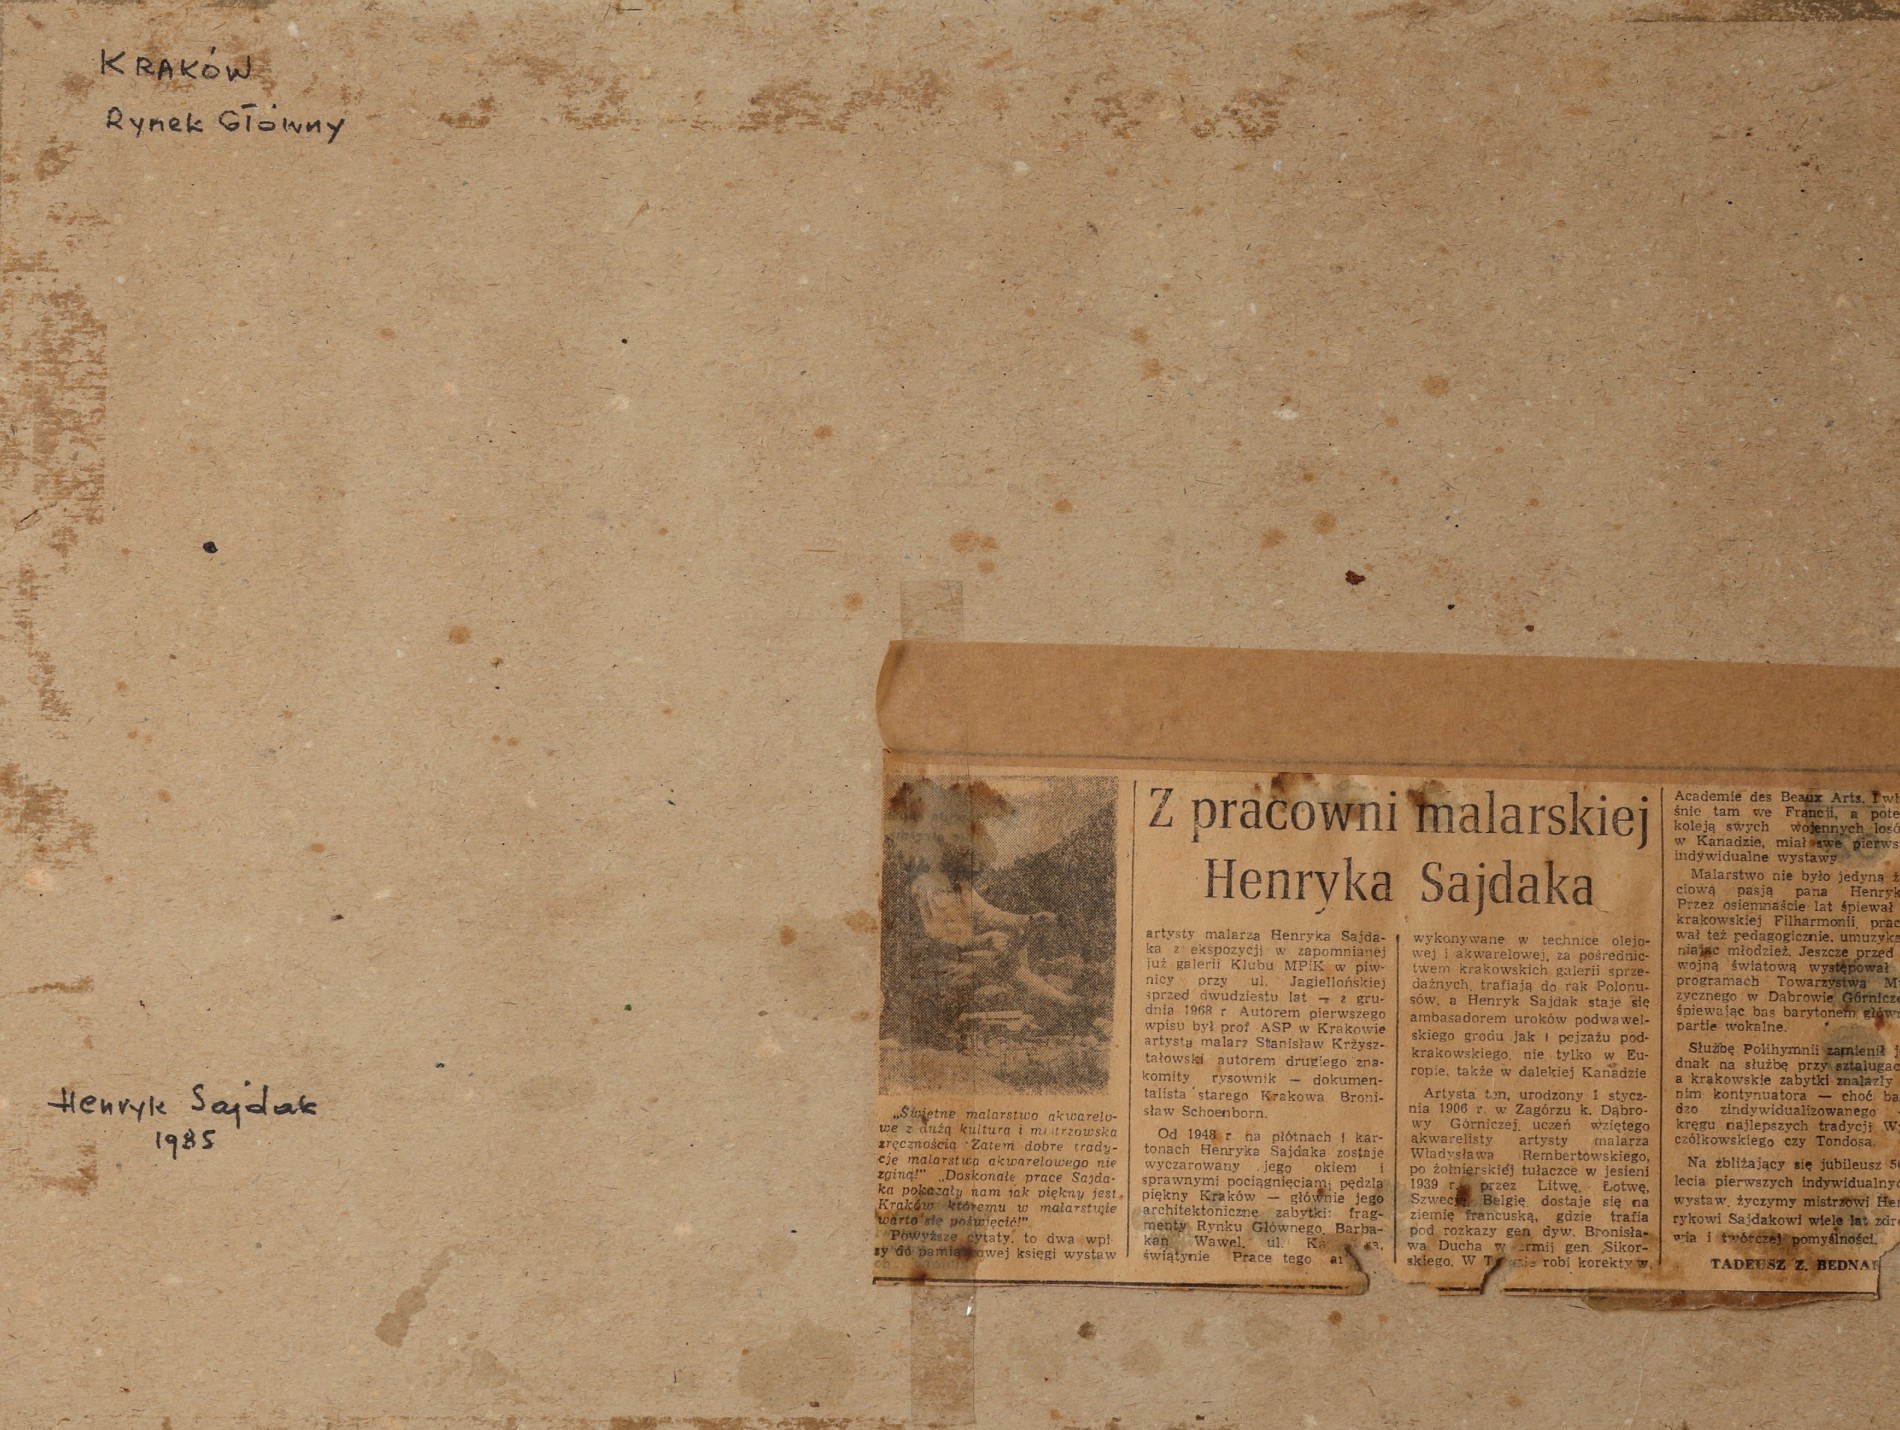 KRAKÓW
Rynek Główny
Henryk Sajdak
1985
Z pracowni malarskiej
Henryka Sajdaka
„Świetne malarstwo akwarelo-
we z dużą kulturą i mistrzowska
zręcznością Zatem dobre trady-
cje malarstwa akwarelowego nie
zginą!" „Doskonałe prace Sajda-
ka pokazały nam jak piękny jest
Kraków któremu w malarstwie
warto się poświęcić!".
Powyższe cytaty, to dwa wpi-
sy do pamiątkowej księgi wystaw
artysty malarza Henryka Sajda-
ka z ekspozycji w zapomnianej
już galerii Klubu MPiK w piw-
nicy przy ul. Jagiellońskiej
sprzed dwudziestu lat — z gru-
dnia 1968 r Autorem pierwszego
wpisu był prof ASP w Krakowie
artysta malarz Stanisław Krzysz-
tałowski autorem drugiego zna-
komity rysownik — dokumen-
talista starego Krakowa Broni-
sław Schoenborn.
Od 1948 r na płótnach i kar-
tonach Henryka Sajdaka zostaje
wyczarowany jego okiem i
sprawnymi pociągnięciami pędzla
piękny Kraków — głównie jego
architektoniczne zabytki: frag-
menty Rynku Głównego, Barba-
kan Wawel, ul.
świątynie Prace tego
wykonywane w technice olejo-
wej i akwarelowej, za pośrednic-
twem krakowskich galerii sprze-
dażnych, trafiają do rąk Polonu-
sów, a Henryk Sajdak staje się
ambasadorem uroków podwawel-
skiego grodu jak i pejzażu pod-
krakowskiego, nie tylko w Eu-
ropie, także w dalekiej Kanadzie
Artysta ten, urodzony 1 stycz-
nia 1906 r. w Zagórzu k. Dąbro-
wy Górniczej, uczeń wziętego
akwarelisty artysty malarza
Władysława Rembertowskiego,
po żołnierskiej tułaczce w jesieni
1939 r. przez Litwę, Łotwę,
Szwecję Belgię, dostaje się na
ziemię francuską, gdzie trafia
pod rozkazy gen dyw. Bronisła-
wa Ducha w armii gen Sikor-
skiego. W robi korekty w
Academie des Beaux Arts. I wła
śnie tam we Francji, a pote
koleją swych wojennych losó
w Kanadzie, miał swe pierws
indywidualne wystawy
Malarstwo nie było jedyną ż
ciową pasją pana Henryk
Przez osiemnaście lat śpiewał
krakowskiej Filharmonii, prac
wał też pedagogicznie, umuzyka
niając młodzież. Jeszcze przed
wojną światową występował
programach Towarzystwa M
zycznego w Dąbrowie Górnicze
śpiewając bas barytonem główn
partie wokalne.
Służbę Polihymnii zamienił j
dnak na służbę przy sztalugac
a krakowskie zabytki znalazły
nim kontynuatora — choć ba
dzo zindywidualizowanego
kręgu najlepszych tradycji W
czółkowskiego czy Tondosa.
Na zbliżający się jubileusz 50
lecia pierwszych indywidualnyc
wystaw, życzymy mistrzowi Hen
rykowi Sajdakowi wiele lat zdro
wia i twórczej pomyślności.
TADEUSZ Z. BEDNAR